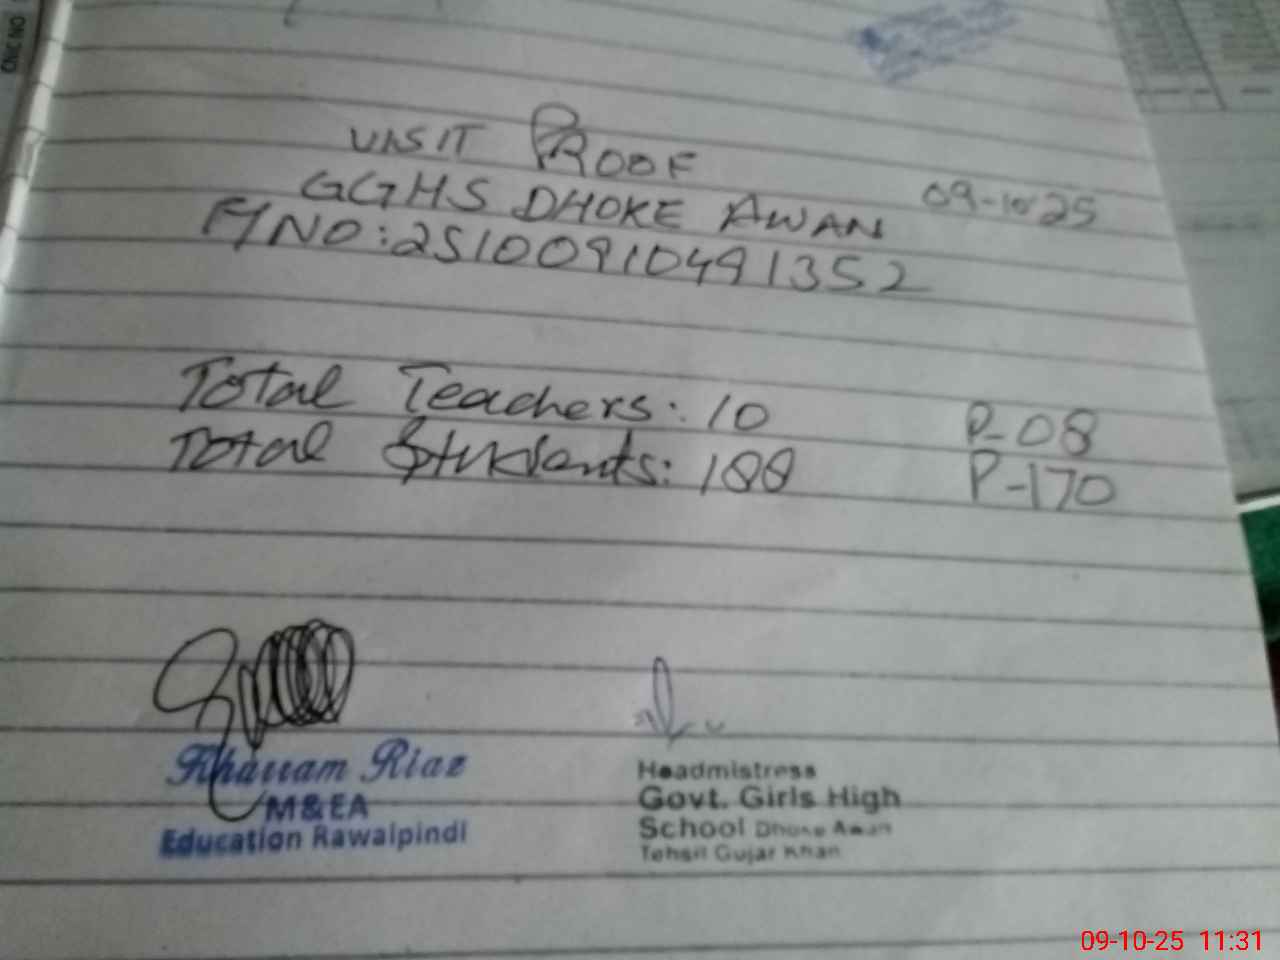 CNIC NO
VISIT PROOF
GGHS DHOKE AWAN 09-10-25
NO: 25100910491352
Total Teachers: 10 P-08
Total Students: 188 P-170
Khurram Riaz
M&EA
Education Rawalpindi
Headmistress
Govt. Girls High
School Dhoke Awan
Tehsil Gujar Khan
09-10-25 11:31